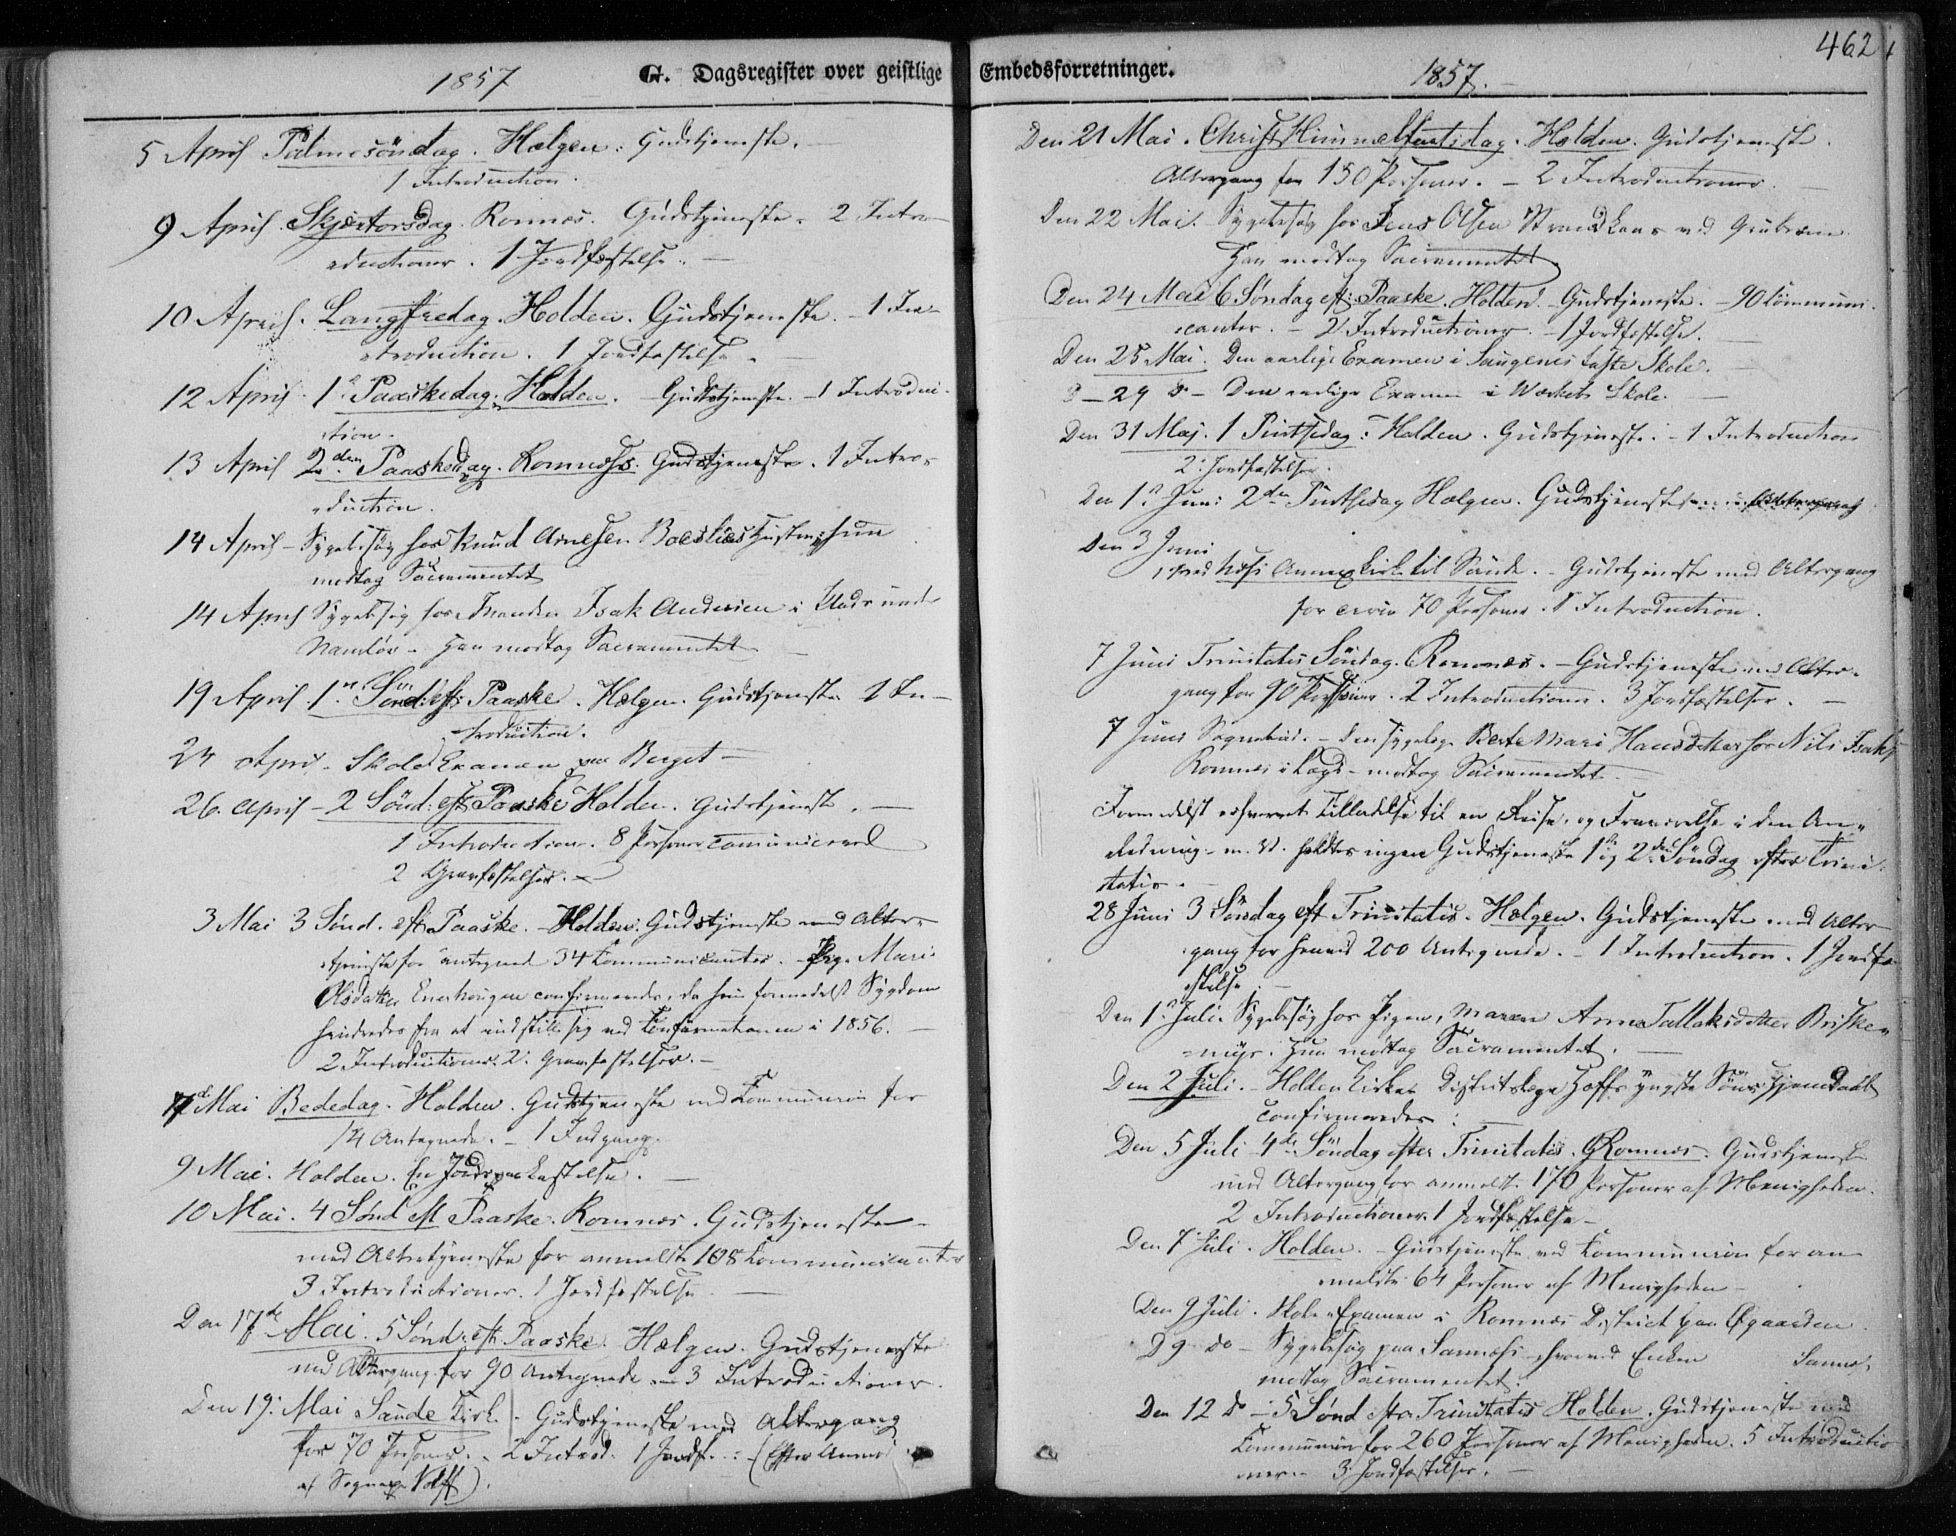 462
G. Dagsregister over geistlige Embedsforretninger.
1857
5 April Palmesöndag. Helgen. Gudstjeneste.
1 Introduction.
9 April. Skjærtorsdag. Romnes. Gudstjeneste. 2 Intro-
ductioner. 1 Jordfæstelse.
10 April. Langfredag. Holden. Gudstjeneste. - 1 In-
troduction. 1 Jordfæstelse.
12 April. 1ste Paaskedag. Holden. Gudstjeneste. - 1 Introduc-
tion.
13 April 2den Paaskedag. Romnes. Gudstjeneste. 1 Intro-
duction.
14 April - Sygebesøg hos Knud Arnesen Hustru, hun
modtog Sacramentet
14 April Sygebesøg hos Manden Isak Andersen i
Namløs - Han modtog Sacramentet
19 April. 1ste Sönd: eft: Paaske. Helgen. Gudstjeneste 1 In-
troduction.
24 April - Skole Examen paa Berget -
26. April - 2 Sönd: eft Paaske Holden. Gudstjeneste. -
1 Introduction. 8 Personer comunicered
2 Gravfæstelser.
3 Mai 3 Sönd. eft Paaske. - Holden. Gudstjeneste med Alter-
tjeneste for antegned 34 Communicanter. - Pige Mari
Olsdatter confirmerede, da hun formedelst Sygdom
hindredes fra at indstille sig ved Confirmationen i 1856. -
2 Introductioner. 2 Gravfæstelser. -
7de Mai Bededag. Holden. Gudstjeneste med Communion for
14 Antegnede. - 1 Indgang.
9 Mai. Holden. En Jordpaakastelse. -
10 Mai. 4 Sönd eft Paaske. Romnes. Gudstjeneste
med Altertjeneste for anmeldte 108 Communicanter
3 Introductioner. 1 Jordfæstelse
Den 17de Mai. 5 Sönd: eft. Paaske. Helgen. Gudstjeneste
med Altergang for 90 Antegnede - 3 Introductioner.
Den 19. Mai Saude Kirke. Gudstjeneste med Altergang
for 70 Personer. - 2 Introd. 1 Jordf. - (Efter
af Sogne Wolff).
1857.
Den 21 Mai. Christi Himmelfartsdag. Holden. Gudstjeneste.
Altergang for 150 Personer. - 2 Introductioner.
Den 22 Mai. Sygebesøg hos Jens Olsen ved
Han modtog Sacramentet.
Den 24 Mai 6 Söndag eft: Paaske. Holden. Gudstjeneste. - 90 Communi-
canter. - 2 Introductioner. - 1 Jordfæstelse.
Den 25 Mai. Den aarlige Examen i faste Skole.
D - 29 D - Den aarlige Examen i Værkets Skole.
Den 31 Maj. 1 Pintsedag. Holden. Gudstjeneste. - 1 Introduction
2 Jordfæstelser.
Den 1ste Juni 2den Pintsedag Helgen. Gudstjeneste
Den 3 Juni
Næs Annexkirke til Saude. - Gudstjeneste med Altergang
for circa 70 Personer. 1 Introduction.
7 Juni Trinitatis Söndag. Romnes. - Gudstjeneste med Alter-
gang for 90 Personer. 2 Introductioner. 3 Jordfæstelser. -
7 Juni Sognebud. - den sygelige Berte Mari Hansdatter hos Nils Isaks
Romnes i Lægd - modtog Sacramentet.
Formedelst erhvervet Tilladelse til en Reise, og Fraværelse i den An-
ledning m. V. holdtes ingen Gudstjeneste 1ste og 2den Söndag efter Trini-
tatis.
28 Juni 3 Söndag eft Trinitatis. Helgen. Gudstjeneste med Alter
gang for henved 200 Antegnede. - 1 Introduction. 1 Jordfæ-
stelse.
Den 1ste Juli. Sygebesøg hos Pigen, Maren Anne Tallaksdatter Briske-
myr. Hun modtog Sacramentet. -
Den 2 Juli. - Holden Kirke. Districtslæge Hoffs yngste Søn Hjemdaab
confirmeredes.
Den 5 Juli 4de Söndag efter Trinitatis. Romnes. Gudstjeneste
med Altergang for anmeldte 170 Personer af Menigheden.
2 Introductioner. 1 Jordfæstelse. -
Den 7 Juli. Holden. - Gudstjeneste med Communion for an-
meldte 64 Personer af Menigheden -
Den 9 Juli. Skole Examen i Romnes District paa Øgaarden.
D 9 do - Sygebesøg paa Sannæs Enken Sannæs
modtog Sacramentet.
Den 12 do - 5 Sönd eft. Trinitatis Holden. Gudstjeneste med
Communion for 260 Personer af Menigheden. 5 Introductio-
ner. - 3 Jordfæstelser. -